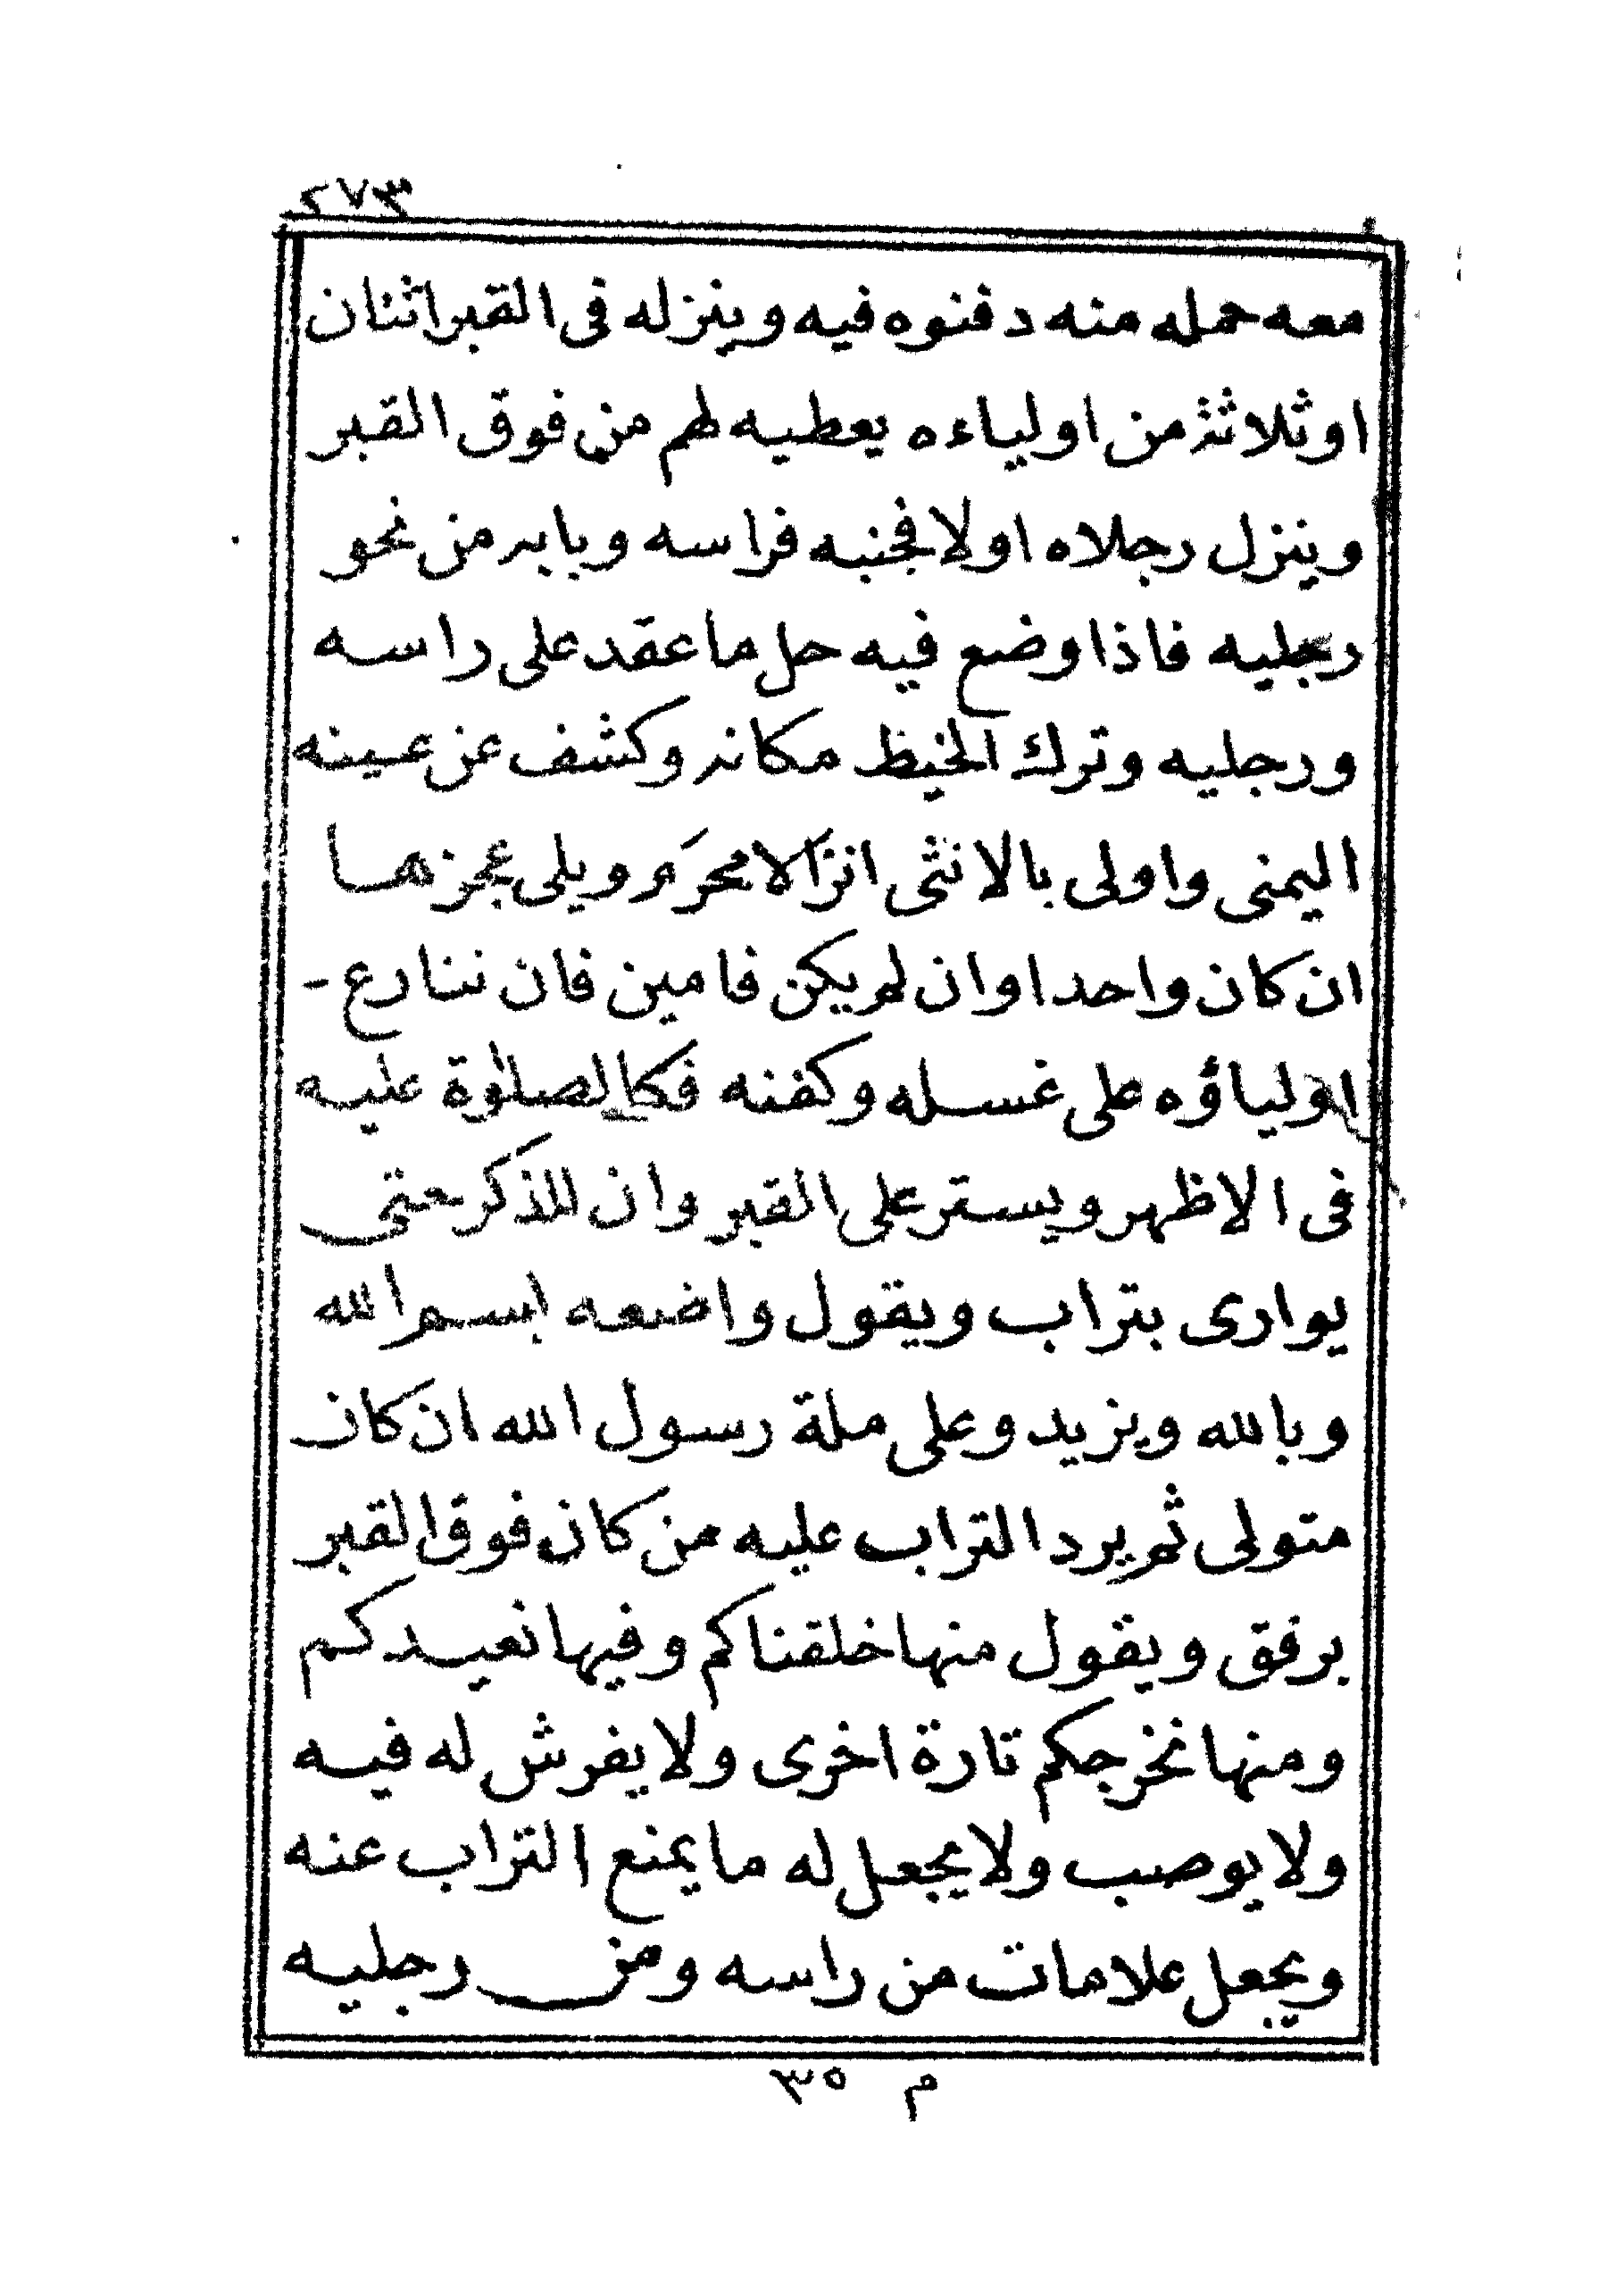 ٢٧٣
معه حمله منه دفنوه فيه وينزله فى القبر اثنان
او ثلاثة من اولياءه يعطيه لهم من فوق القبر
وينزل رجلاه اولا فجنبه فراسه وبابه من نحو
رجليه فاذا وضع فيه حل ما عقد على راسه
ورجليه وترك الخيط مكانه وكشف عن عينه
اليمنى واولى بالانثى انزالا محرم ويلى عجزها
ان كان واحدا وان لم يكن فامين فان تنازع -
اولياؤه على غسله وكفنه فكالصلوة عليه
فى الاظهر ويستر على القبر وان للذكر حتى
يوارى بتراب ويقول واضعه بسم الله
وبالله ويزيد وعلى ملة رسول الله ان كان
متولى ثم يرد التراب عليه من كان فوق القبر
برفق ويقول منها خلقناكم وفيها نعيدكم
ومنها نخرجكم تارة اخرى ولا يفرش له فيه
ولا يوصب ولا يجعل له ما يمنع التراب عنه
ويجعل علامات من راسه ومن رجليه
م ٣٥